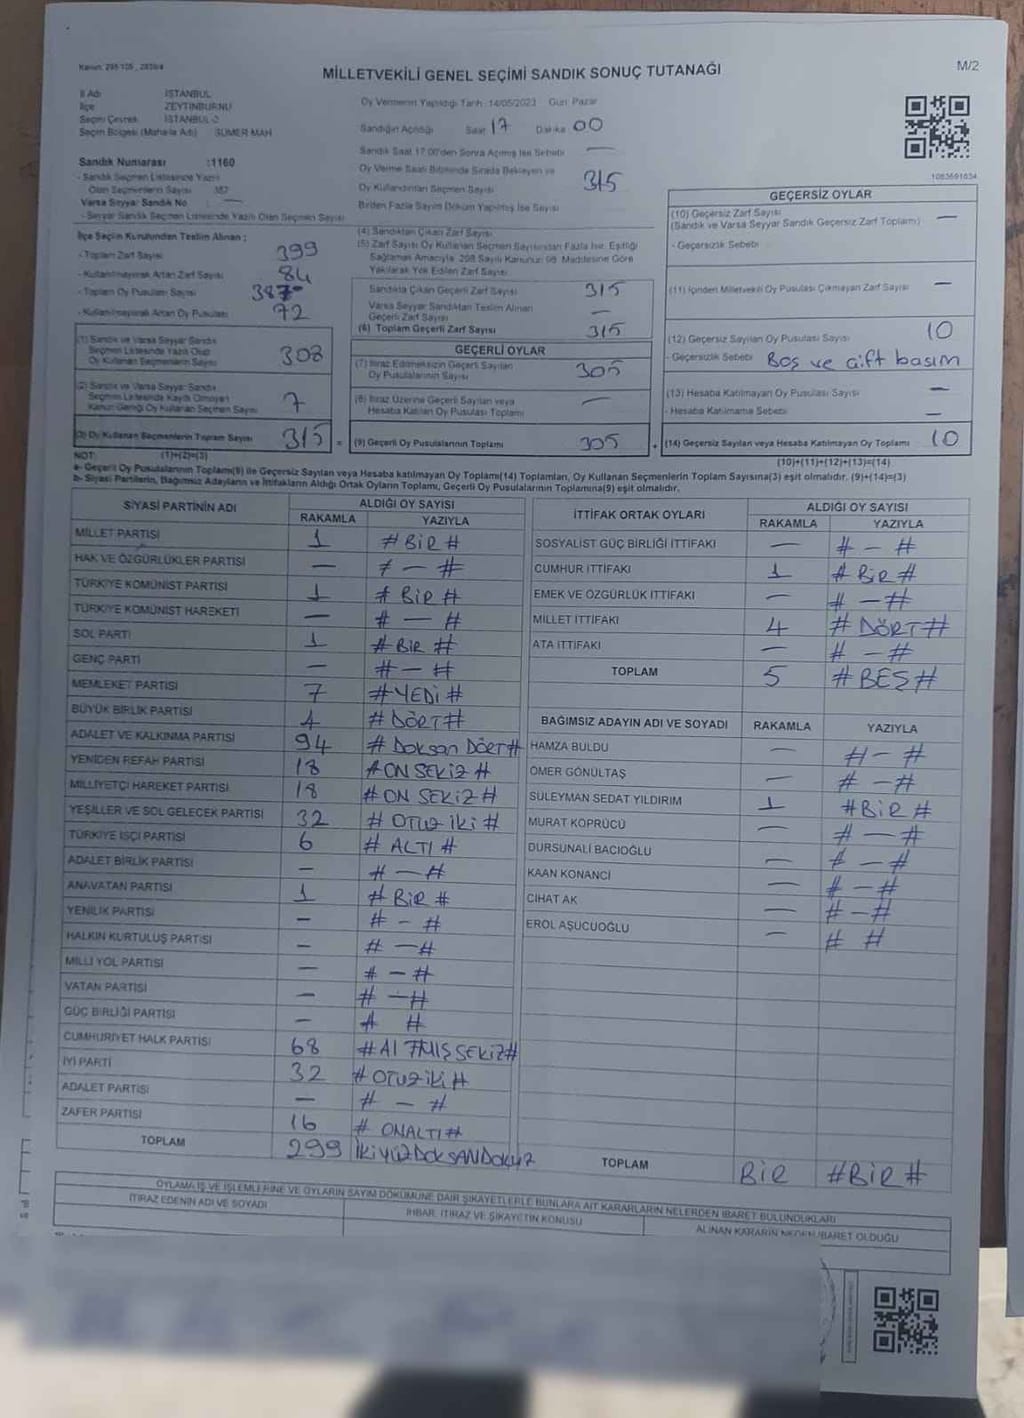 Kanun: 298/105, 2839/4
MİLLETVEKİLİ GENEL SEÇİMİ SANDIK SONUÇ TUTANAĞI
M/2
İl Adı İSTANBUL
İlçe ZEYTİNBURNU
Seçim Çevresi İSTANBUL-2
Seçim Bölgesi (Mahalle Adı) SÜMER MAH
Sandık Numarası :1160
- Sandık Seçmen Listesinde Yazılı
Olan Seçmenlerin Sayısı 387
Varsa Seyyar Sandık No —
- Seyyar Sandık Seçmen Listesinde Yazılı Olan Seçmen Sayısı
Oy Vermenin Yapıldığı Tarih :14/05/2023 Gün: Pazar
Sandığın Açıldığı Saat 17 Dakika 00
Sandık Saat 17:00'den Sonra Açılmış İse Sebebi —
Oy Verme Saati Bitiminde Sırada Bekleyen ve
Oy Kullandırılan Seçmen Sayısı 315
Birden Fazla Sayım Döküm Yapılmış İse Sayısı
1083691634
İlçe Seçim Kurulundan Teslim Alınan ;
- Toplam Zarf Sayısı 399
- Kullanılmayarak Artan Zarf Sayısı 84
- Toplam Oy Pusulası Sayısı 387
- Kullanılmayarak Artan Oy Pusulası 72
(1) Sandık ve Varsa Seyyar Sandık
Seçmen Listesinde Yazılı Olup
Oy Kullanan Seçmenlerin Sayısı 308
(2) Sandık ve Varsa Seyyar Sandık
Seçmen Listesinde Kayıtlı Olmayan
Kanun Gereği Oy Kullanan Seçmen Sayısı 7
(3) Oy Kullanan Seçmenlerin Toplam Sayısı 315 =
(1)+(2)=(3)
(4) Sandıktan Çıkan Zarf Sayısı
(5) Zarf Sayısı Oy Kullanan Seçmen Sayısından Fazla İse, Eşitliği
Sağlamak Amacıyla, 298 Sayılı Kanunun 98. Maddesine Göre
Yakılarak Yok Edilen Zarf Sayısı
Sandıkta Çıkan Geçerli Zarf Sayısı 315
Varsa Seyyar Sandıktan Teslim Alınan
Geçerli Zarf Sayısı —
(6) Toplam Geçerli Zarf Sayısı 315
GEÇERLİ OYLAR
(7) İtiraz Edilmeksizin Geçerli Sayılan
Oy Pusulalarının Sayısı 305
(8) İtiraz Üzerine Geçerli Sayılan veya
Hesaba Katılan Oy Pusulası Toplamı —
(9) Geçerli Oy Pusulalarının Toplamı 305 +
GEÇERSİZ OYLAR
(10) Geçersiz Zarf Sayısı —
(Sandık ve Varsa Seyyar Sandık Geçersiz Zarf Toplamı)
- Geçersizlik Sebebi
(11) İçinden Milletvekili Oy Pusulası Çıkmayan Zarf Sayısı —
(12) Geçersiz Sayılan Oy Pusulası Sayısı 10
- Geçersizlik Sebebi Boş ve çift basım
(13) Hesaba Katılmayan Oy Pusulası Sayısı —
- Hesaba Katılmama Sebebi —
(14) Geçersiz Sayılan veya Hesaba Katılmayan Oy Toplamı 10
(10)+(11)+(12)+(13)=(14)
NOT:
a- Geçerli Oy Pusulalarının Toplamı(9) ile Geçersiz Sayılan veya Hesaba katılmayan Oy Toplamı(14) Toplamları, Oy Kullanan Seçmenlerin Toplam Sayısına(3) eşit olmalıdır. (9)+(14)=(3)
b- Siyasi Partilerin, Bağımsız Adayların ve İttifakların Aldığı Ortak Oyların Toplamı, Geçerli Oy Pusulalarının Toplamına(9) eşit olmalıdır.
SİYASİ PARTİNİN ADI ALDIĞI OY SAYISI
RAKAMLA YAZIYLA
MİLLET PARTİSI 1 # BİR #
HAK VE ÖZGÜRLÜKLER PARTİSİ — # — #
TÜRKİYE KOMÜNİST PARTİSİ 1 # BİR #
TÜRKİYE KOMÜNİST HAREKETİ — # — #
SOL PARTİ 1 # BİR #
GENÇ PARTİ — # — #
MEMLEKET PARTİSİ 7 # YEDİ #
BÜYÜK BİRLİK PARTİSİ 4 # DÖRT #
ADALET VE KALKINMA PARTİSİ 94 # Doksan DÖRT #
YENİDEN REFAH PARTİSİ 18 # ON SEKİZ #
MİLLİYETÇİ HAREKET PARTİSİ 18 # ON SEKİZ #
YEŞİLLER VE SOL GELECEK PARTİSİ 32 # OTUZ İKİ #
TÜRKİYE İŞÇİ PARTİSİ 6 # ALTI #
ADALET BİRLİK PARTİSİ — # — #
ANAVATAN PARTİSİ 1 # BİR #
YENİLİK PARTİSİ — # — #
HALKIN KURTULUŞ PARTİSİ — # — #
MİLLİ YOL PARTİSİ — # — #
VATAN PARTİSİ — # — #
GÜÇ BİRLİĞİ PARTİSİ — # #
CUMHURİYET HALK PARTİSİ 68 # ALTMIŞ SEKİZ #
İYİ PARTİ 32 # OTUZ İKİ #
ADALET PARTİSİ — # — #
ZAFER PARTİSİ 16 # ONALTI #
TOPLAM 299 İKİYÜZDOKSANDOKUZ
İTTİFAK ORTAK OYLARI ALDIĞI OY SAYISI
RAKAMLA YAZIYLA
SOSYALİST GÜÇ BİRLİĞİ İTTİFAKI — # — #
CUMHUR İTTİFAKI 1 # BİR #
EMEK VE ÖZGÜRLÜK İTTİFAKI — # — #
MİLLET İTTİFAKI 4 # DÖRT #
ATA İTTİFAKI — # — #
TOPLAM 5 # BEŞ #
BAĞIMSIZ ADAYIN ADI VE SOYADI RAKAMLA YAZIYLA
HAMZA BULDU — # — #
ÖMER GÖNÜLTAŞ — # — #
SÜLEYMAN SEDAT YILDIRIM 1 # BİR #
MURAT KÖPRÜCÜ — # — #
DURSUNALİ BACIOĞLU — # — #
KAAN KONANCI — # — #
CİHAT AK — # — #
EROL AŞUCUOĞLU — # #
TOPLAM BİR # BİR #
OYLAMA İŞ VE İŞLEMLERİNE VE OYLARIN SAYIM DÖKÜMÜNE DAİR ŞİKAYETLERLE BUNLARA AİT KARARLARIN NELERDEN İBARET BULUNDUKLARI
İTİRAZ EDENİN ADI VE SOYADI
İHBAR, İTİRAZ VE ŞİKAYETİN KONUSU
ALINAN KARARIN NEDEN İBARET OLDUĞU